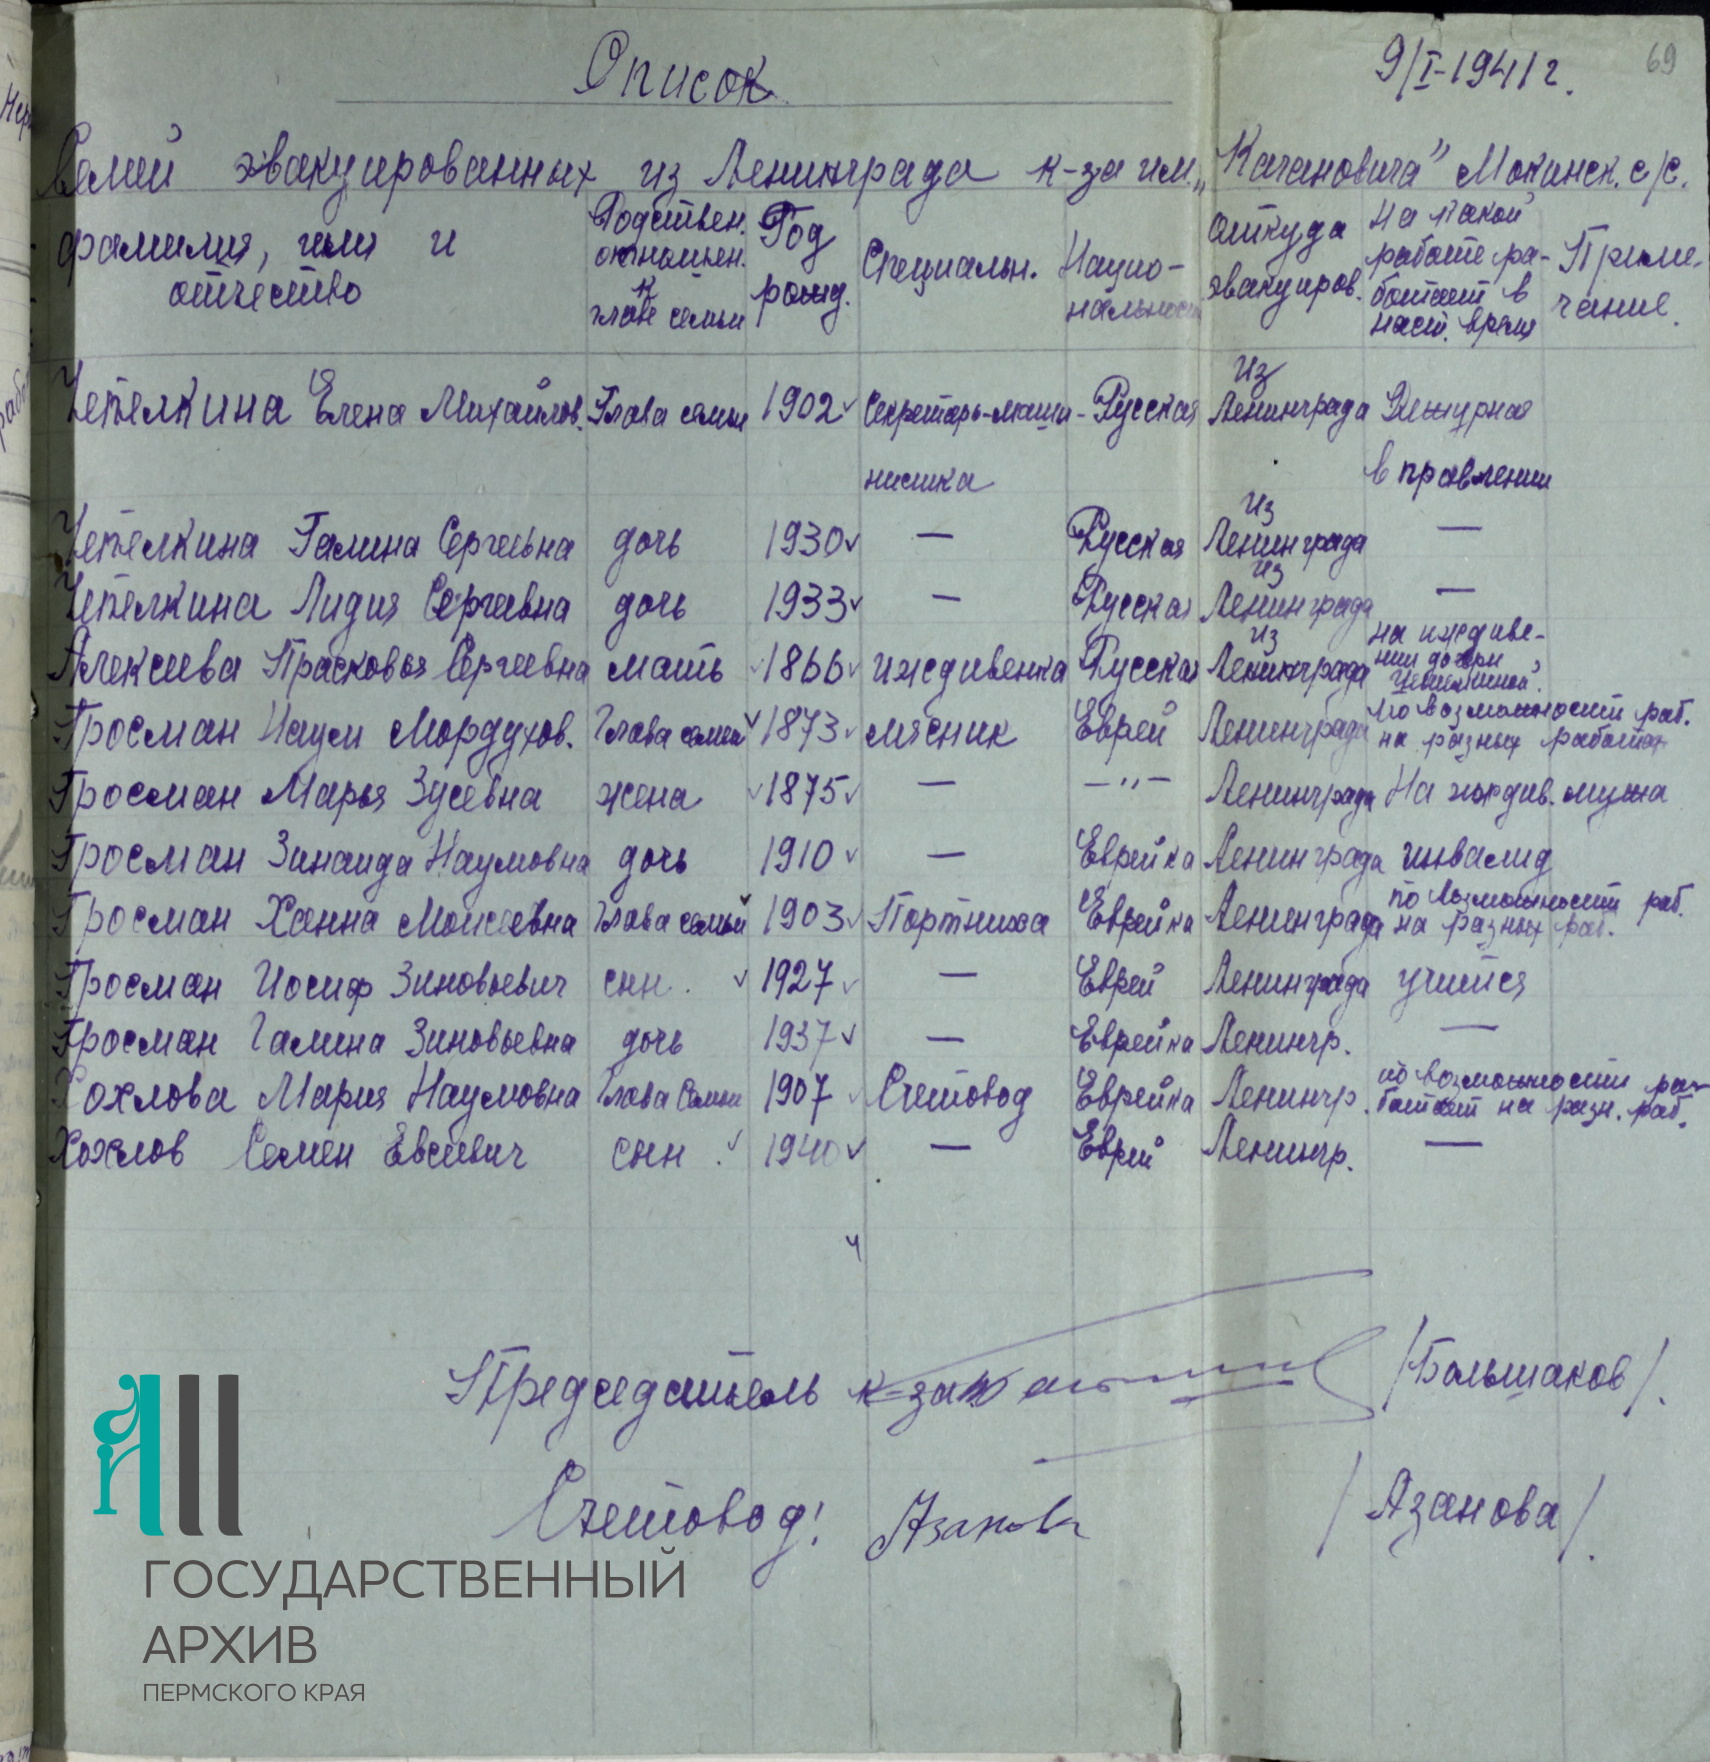 Список
9/I-1941 г.
69
Семей эвакуированных из Ленинграда к-за им. „Кагановича" Мокинск. с/с.
фамилия, имя и отчество
Родствен. отношен. к главе семьи
Год рожд.
Специальн.
Националь­ность
Откуда эвакуиров.
На какой работе ра-ботает в наст. время
Приме-чание.
Чепелкина Елена Михайлов. Глава семьи 1902 Секретарь-маши- Русская Из Ленинграда Дежурная
нистка в правлении
Чепелкина Галина Сергеевна дочь 1930 — Русская Из Ленинграда —
Чепелкина Лидия Сергеевна дочь 1933 — Русская Из Ленинграда —
Алексеева Прасковья Сергеевна мать 1866 иждивенка Русская Из Ленинграда на иждиве-нии дочери Чепелкиной.
Гросман Наум Мордухов. Глава семьи 1873 мясник Еврей Ленинграда По возможности раб. на разных работах
Гросман Марья Зусевна жена 1875 — —"— Ленинграда На иждив. мужа
Гросман Зинаида Наумовна дочь 1910 — Еврейка Ленинграда инвалид
Гросман Ханна Моисеевна Глава семьи 1903 Портниха Еврейка Ленинграда по возможности раб. на разных раб.
Гросман Иосиф Зиновьевич сын. 1927 — Еврей Ленинграда учится
Гросман Галина Зиновьевна дочь 1937 — Еврейка Ленингр. —
Хохлова Мария Наумовна Глава Семьи 1907 Счетовод Еврейка Ленингр. по возможности ра-ботает на разн. раб.
Хохлов Семен Евсеевич сын. 1940 — Еврей Ленингр. —
Председатель к-за /Большаков/.
Счетовод! Азанова /Азанова/.
ГОСУДАРСТВЕННЫЙ
АРХИВ
ПЕРМСКОГО КРАЯ